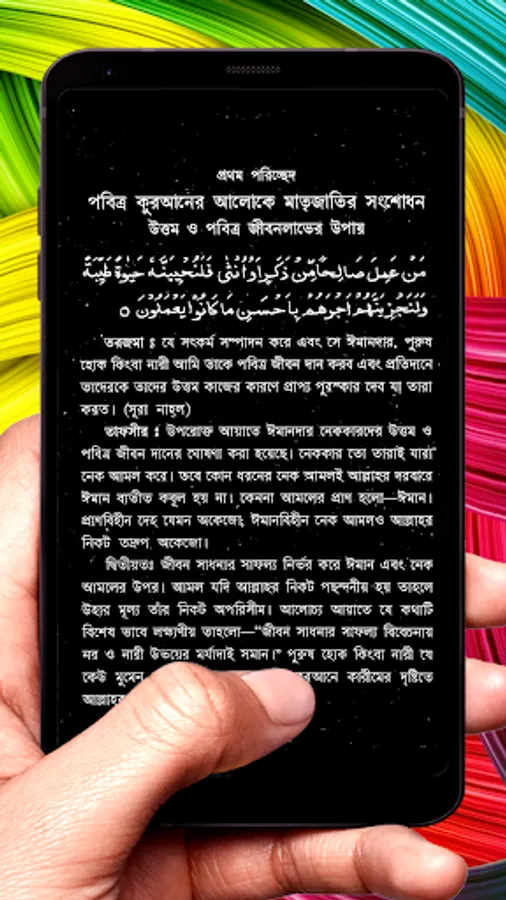 প্রথম পরিচ্ছেদ
পবিত্র কুরআনের আলোকে মাতৃজাতির সংশোধন
উত্তম ও পবিত্র জীবনলাভের উপায়
مَنْ عَمِلَ صَالِحًا مِّنْ ذَكَرٍ اَوْ اُنْثٰى فَلَنُحْيِيَنَّهٗ حَيٰوةً طَيِّبَةً
وَلَنَجْزِيَنَّهُمْ اَجْرَهُمْ بِاَحْسَنِ مَا كَانُوْا يَعْمَلُوْنَ ○
তরজমা : যে সৎকর্ম সম্পাদন করে এবং সে ঈমানদার, পুরুষ
হোক কিংবা নারী আমি তাকে পবিত্র জীবন দান করব এবং প্রতিদানে
তাদেরকে তাদের উত্তম কাজের কারণে প্রাপ্য পুরস্কার দেব যা তারা
করত। (সূরা নাহ্‌ল)
তাফসীর : উপরোক্ত আয়াতে ঈমানদার নেককারদের উত্তম ও
পবিত্র জীবন দানের ঘোষণা করা হয়েছে। নেককার তো তারাই যারা
নেক আমল করে। তবে কোন ধরনের নেক আমলই আল্লাহর দরবারে
ঈমান ব্যতীত কবুল হয় না। কেননা আমলের প্রাণ হলো—ঈমান।
প্রাণবিহীন দেহ যেমন অকেজো, ঈমানবিহীন নেক আমলও আল্লাহর
নিকট তদ্রূপ অকেজো।
দ্বিতীয়তঃ জীবন সাধনার সাফল্য নির্ভর করে ঈমান এবং নেক
আমলের উপর। আমল যদি আল্লাহর নিকট পছন্দনীয় হয় তাহলে
উহার মূল্য তাঁর নিকট অপরিসীম। আলোচ্য আয়াতে যে কথাটি
বিশেষ ভাবে লক্ষ্যণীয় তাহলো—“জীবন সাধনার সাফল্য বিবেচনায়
নর ও নারী উভয়ের মর্যাদাই সমান।” পুরুষ হোক কিংবা নারী যে
কেউ মুমেন কারীমের দৃষ্টিতে